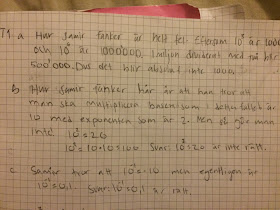 T1. a Hur Samir tänker är helt fel. Eftersom 10³ är 1000
och 10⁶ är 1000'000. 1 miljon dividerat med två blir
500'000. Dus det blir absolut inte 1000.
b Hur Samir tänker här är att han tror att
man ska multiplicera basen som i detta fallet är
10 med exponenten som är 2. Men så gör man
inte. 10²=20
10²=10·10=100 Svar: 10²=20 är inte rätt.
c Samir tror att 10⁻¹=-10 men egentligen är
10⁻¹=0,1. Svar: 10⁻¹=0,1 är rätt.